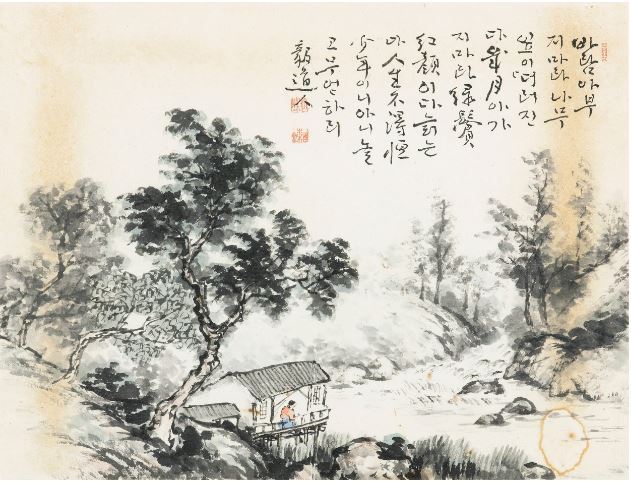 바람아부
지마라나무
잎이떠러진
다歲月아가
지마라綠鬢
紅顔이다늙는
다人生不得恒
少年이니아니놀
고무엇하리
毅道人